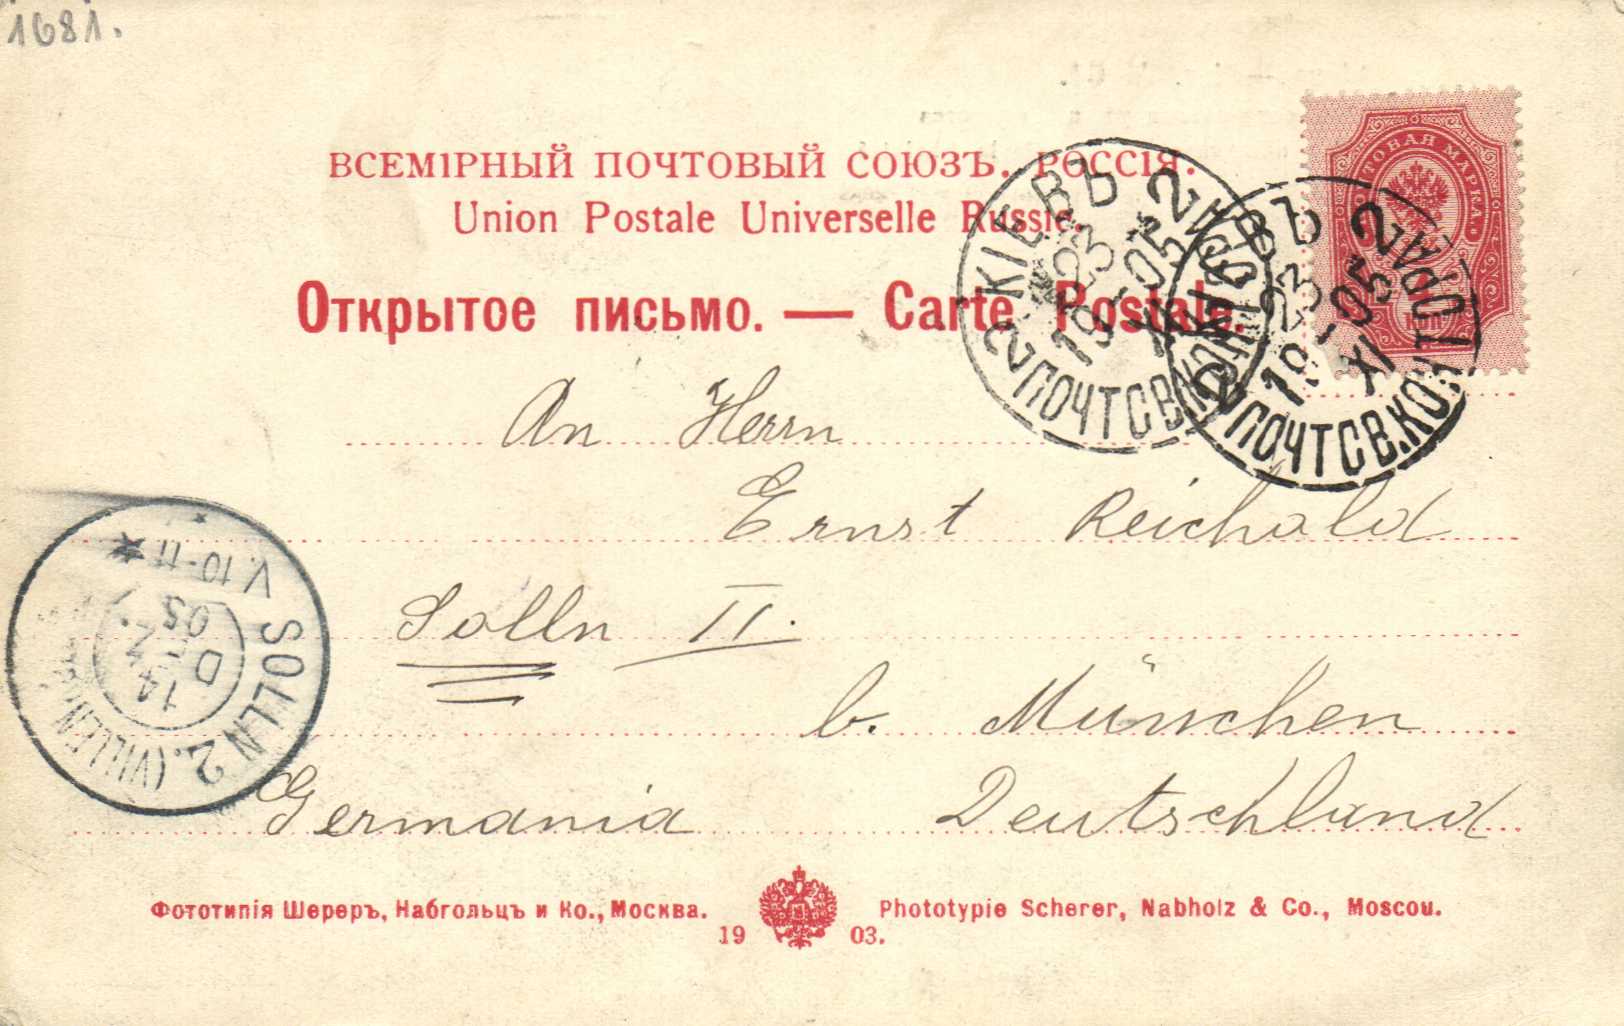 1681.
ВСЕМІРНЫЙ ПОЧТОВЫЙ СОЮЗЪ. РОССІЯ.
Union Postale Universelle Russie.
Открытое письмо. — Carte Postale.
КІЕВЪ 2
23
19-05
XI
2 ПОЧТОВ.КОНТОРА
КІЕВЪ 2
23
19-05
XI
2 ПОЧТОВ.КОНТОРА
МАРКА
КОП.
An Herrn
Ernst Reichold
Solln II.
b. München
Germania Deutschland
SOLLN 2. (VILLEN
14
DEZ.
05
V. 10-11
Фототипія Шереръ, Набгольцъ и Ко., Москва.
Phototypie Scherer, Nabholz & Co., Moscou.
1903.